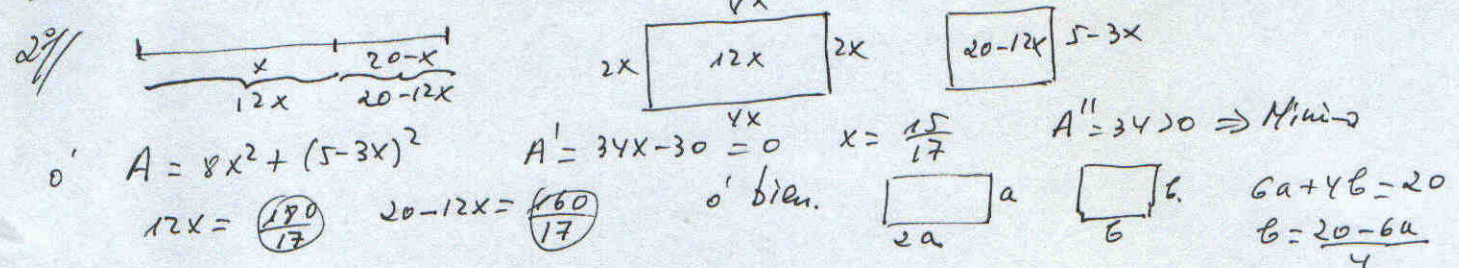 2º//
x 20-x
12x 20-12x
4x
2x 12x 2x
4x
20-12x 5-3x
ó A = 8x² + (5-3x)² A' = 34x-30 = 0 x = 15/17 A'' = 34>0 ⇒ Mínimo
12x = 180/17 20-12x = 160/17 ó bien. a 2a b. b 6a+4b=20
b = 20-6a/4